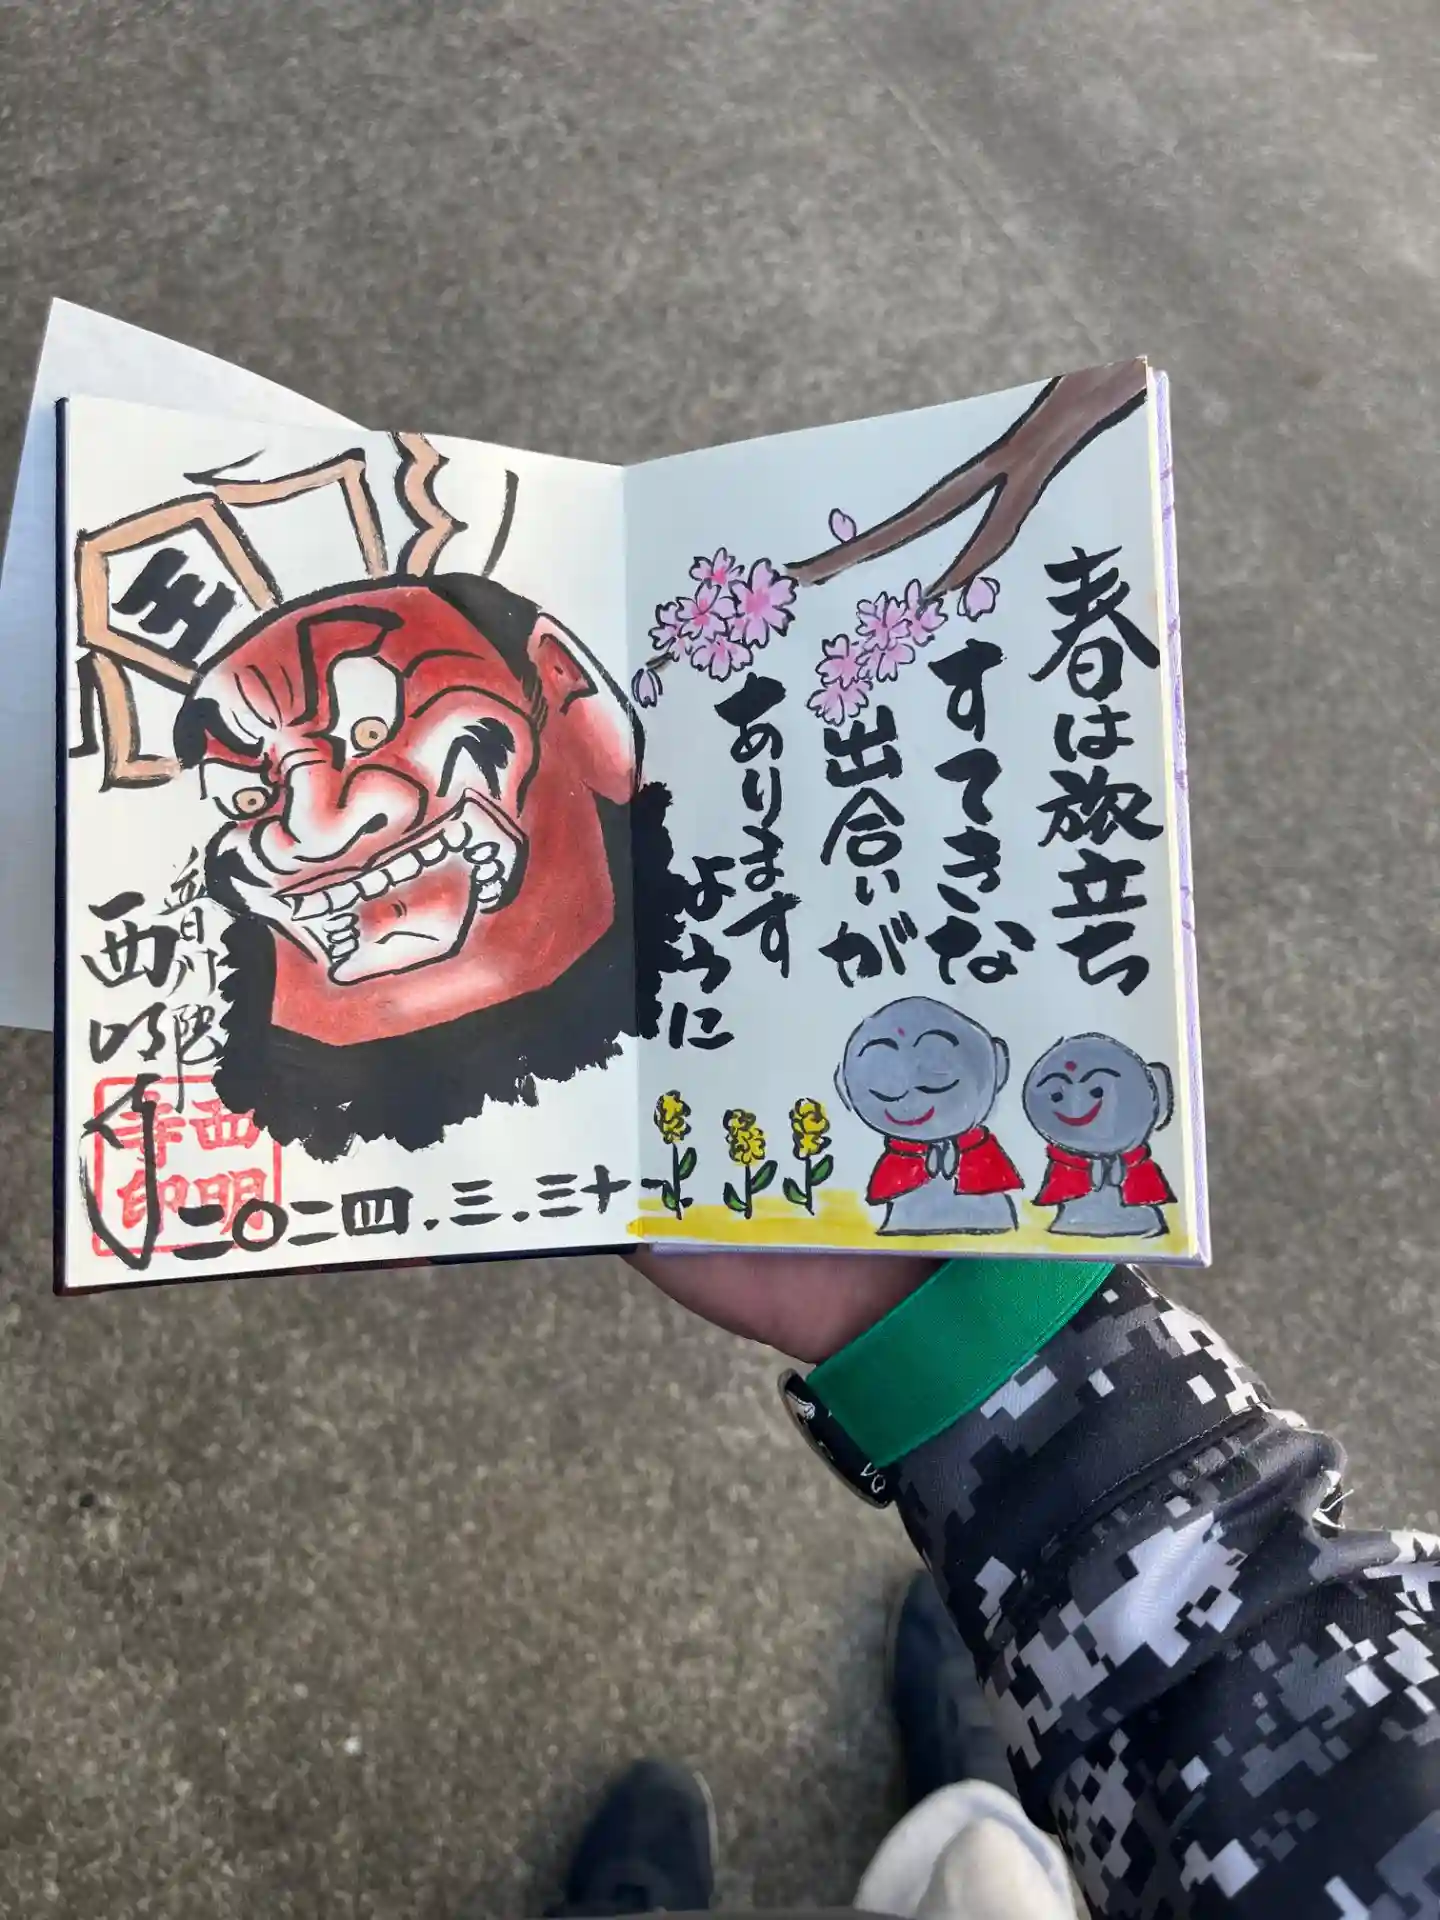 春は旅立ち
すてきな
出合いが
あります
ように
王
普川院
西明寺
西明
寺印
二〇二四.三.三十一